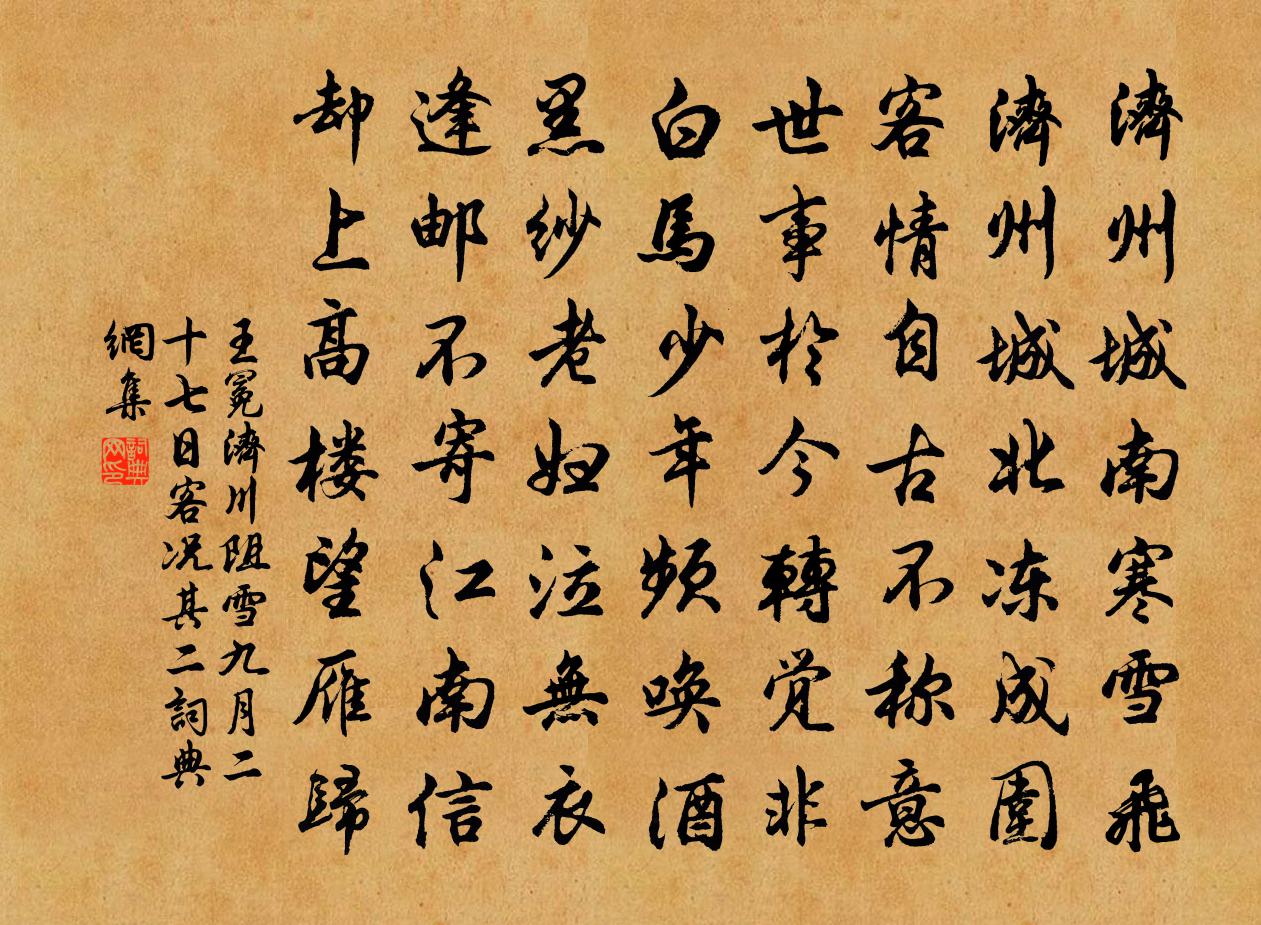 濟州城南寒雪飛
濟州城北冻成圍
客情自古不称意
世事於今轉觉非
白馬少年頻唤酒
黑纱老妇泣無衣
逢邮不寄江南信
却上高楼望雁歸
王冕濟川阻雪九月二
十七日客况其二詞典
網集
詞典
网印